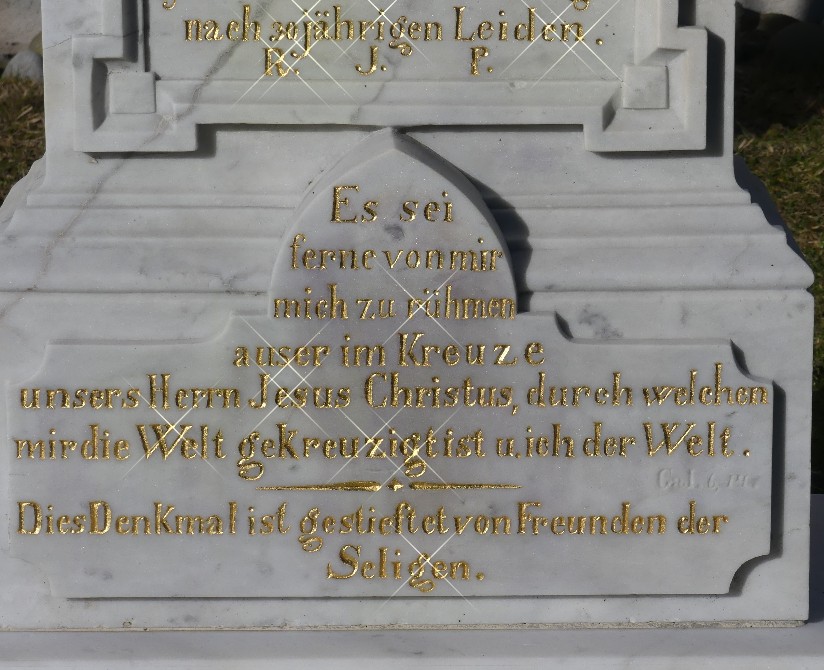 nach 30jährigen Leiden.
R. J. P.
Es sei
ferne von mir
mich zu rühmen
auser im Kreuze
unsers Herrn Jesus Christus, durch welchen
mir die Welt gekreuzigt ist u. ich der Welt.
Gal. 6, 14.
Dies Denkmal ist gestieftet von Freunden der
Seligen.